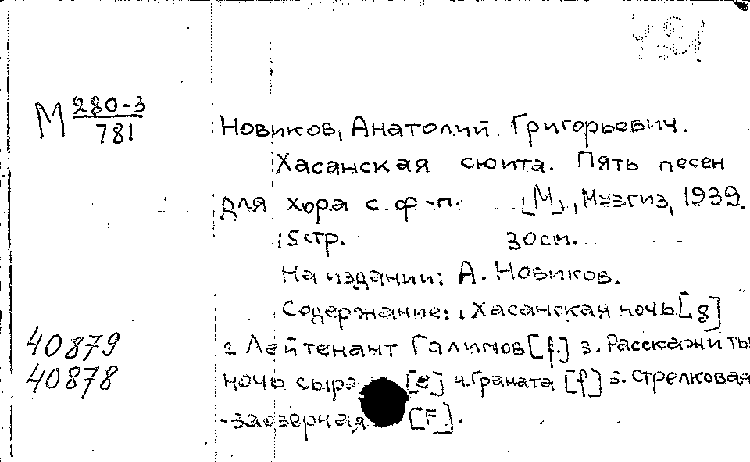 М 280-3
781
Новиков, Анатолий Григорьевич.
Хасанская сюита. Пять песен
для хора с ф-п. [М], Музгиз, 1939.
15 стр. 30 см.
На издании: А. Новиков.
Содержание: 1 Хасанская ночь [g]
40879 2 Лейтенант Галимов [f.] 3. Расскажи ты
40878 ночь [e] 4. Граната [f] 5. Стрелковая
-заозерная [F].